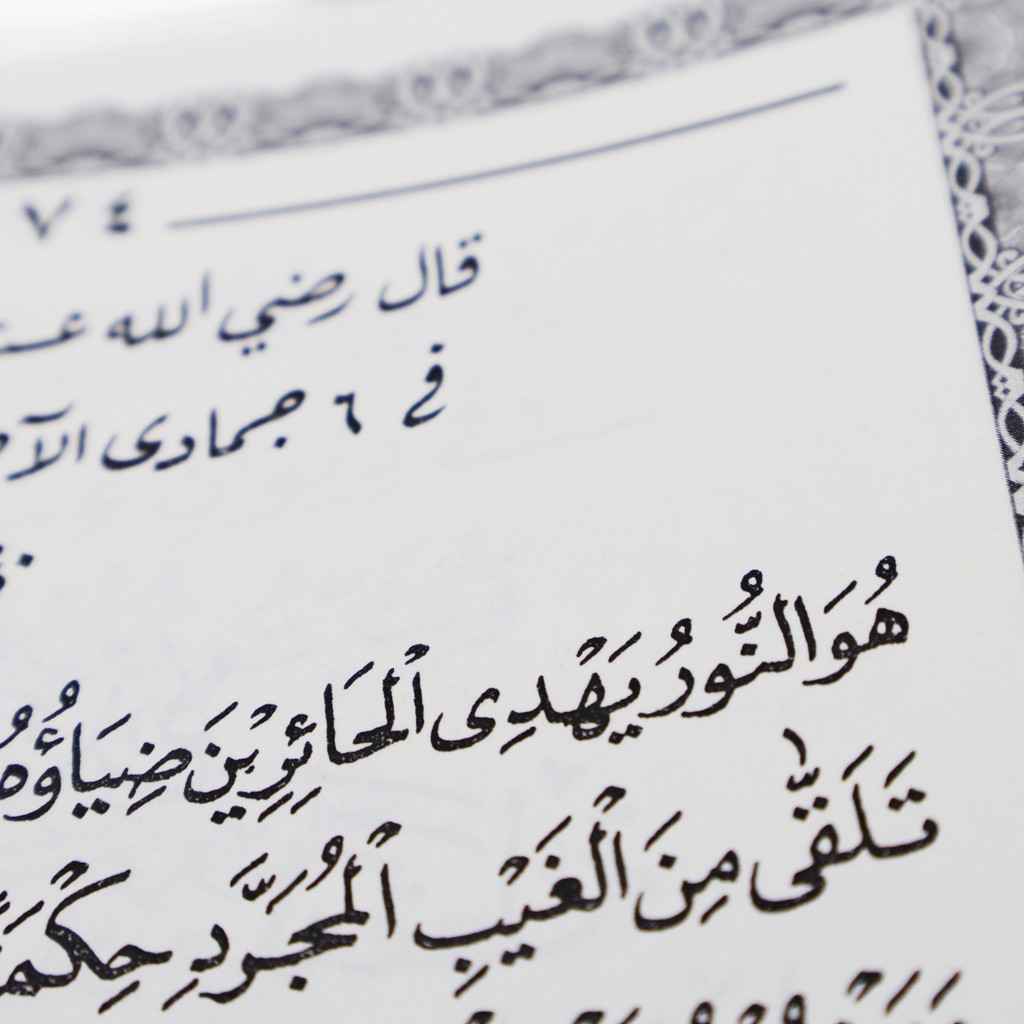 ٧٤
قال رضي الله
في ٦ جمادى
هُوَ النُّورُ يَهْدِى الْحَائِرِيْنَ ضِيَاؤُهُ
تَلَقَّى مِنَ الْغَيْبِ الْمُجَرَّدِ